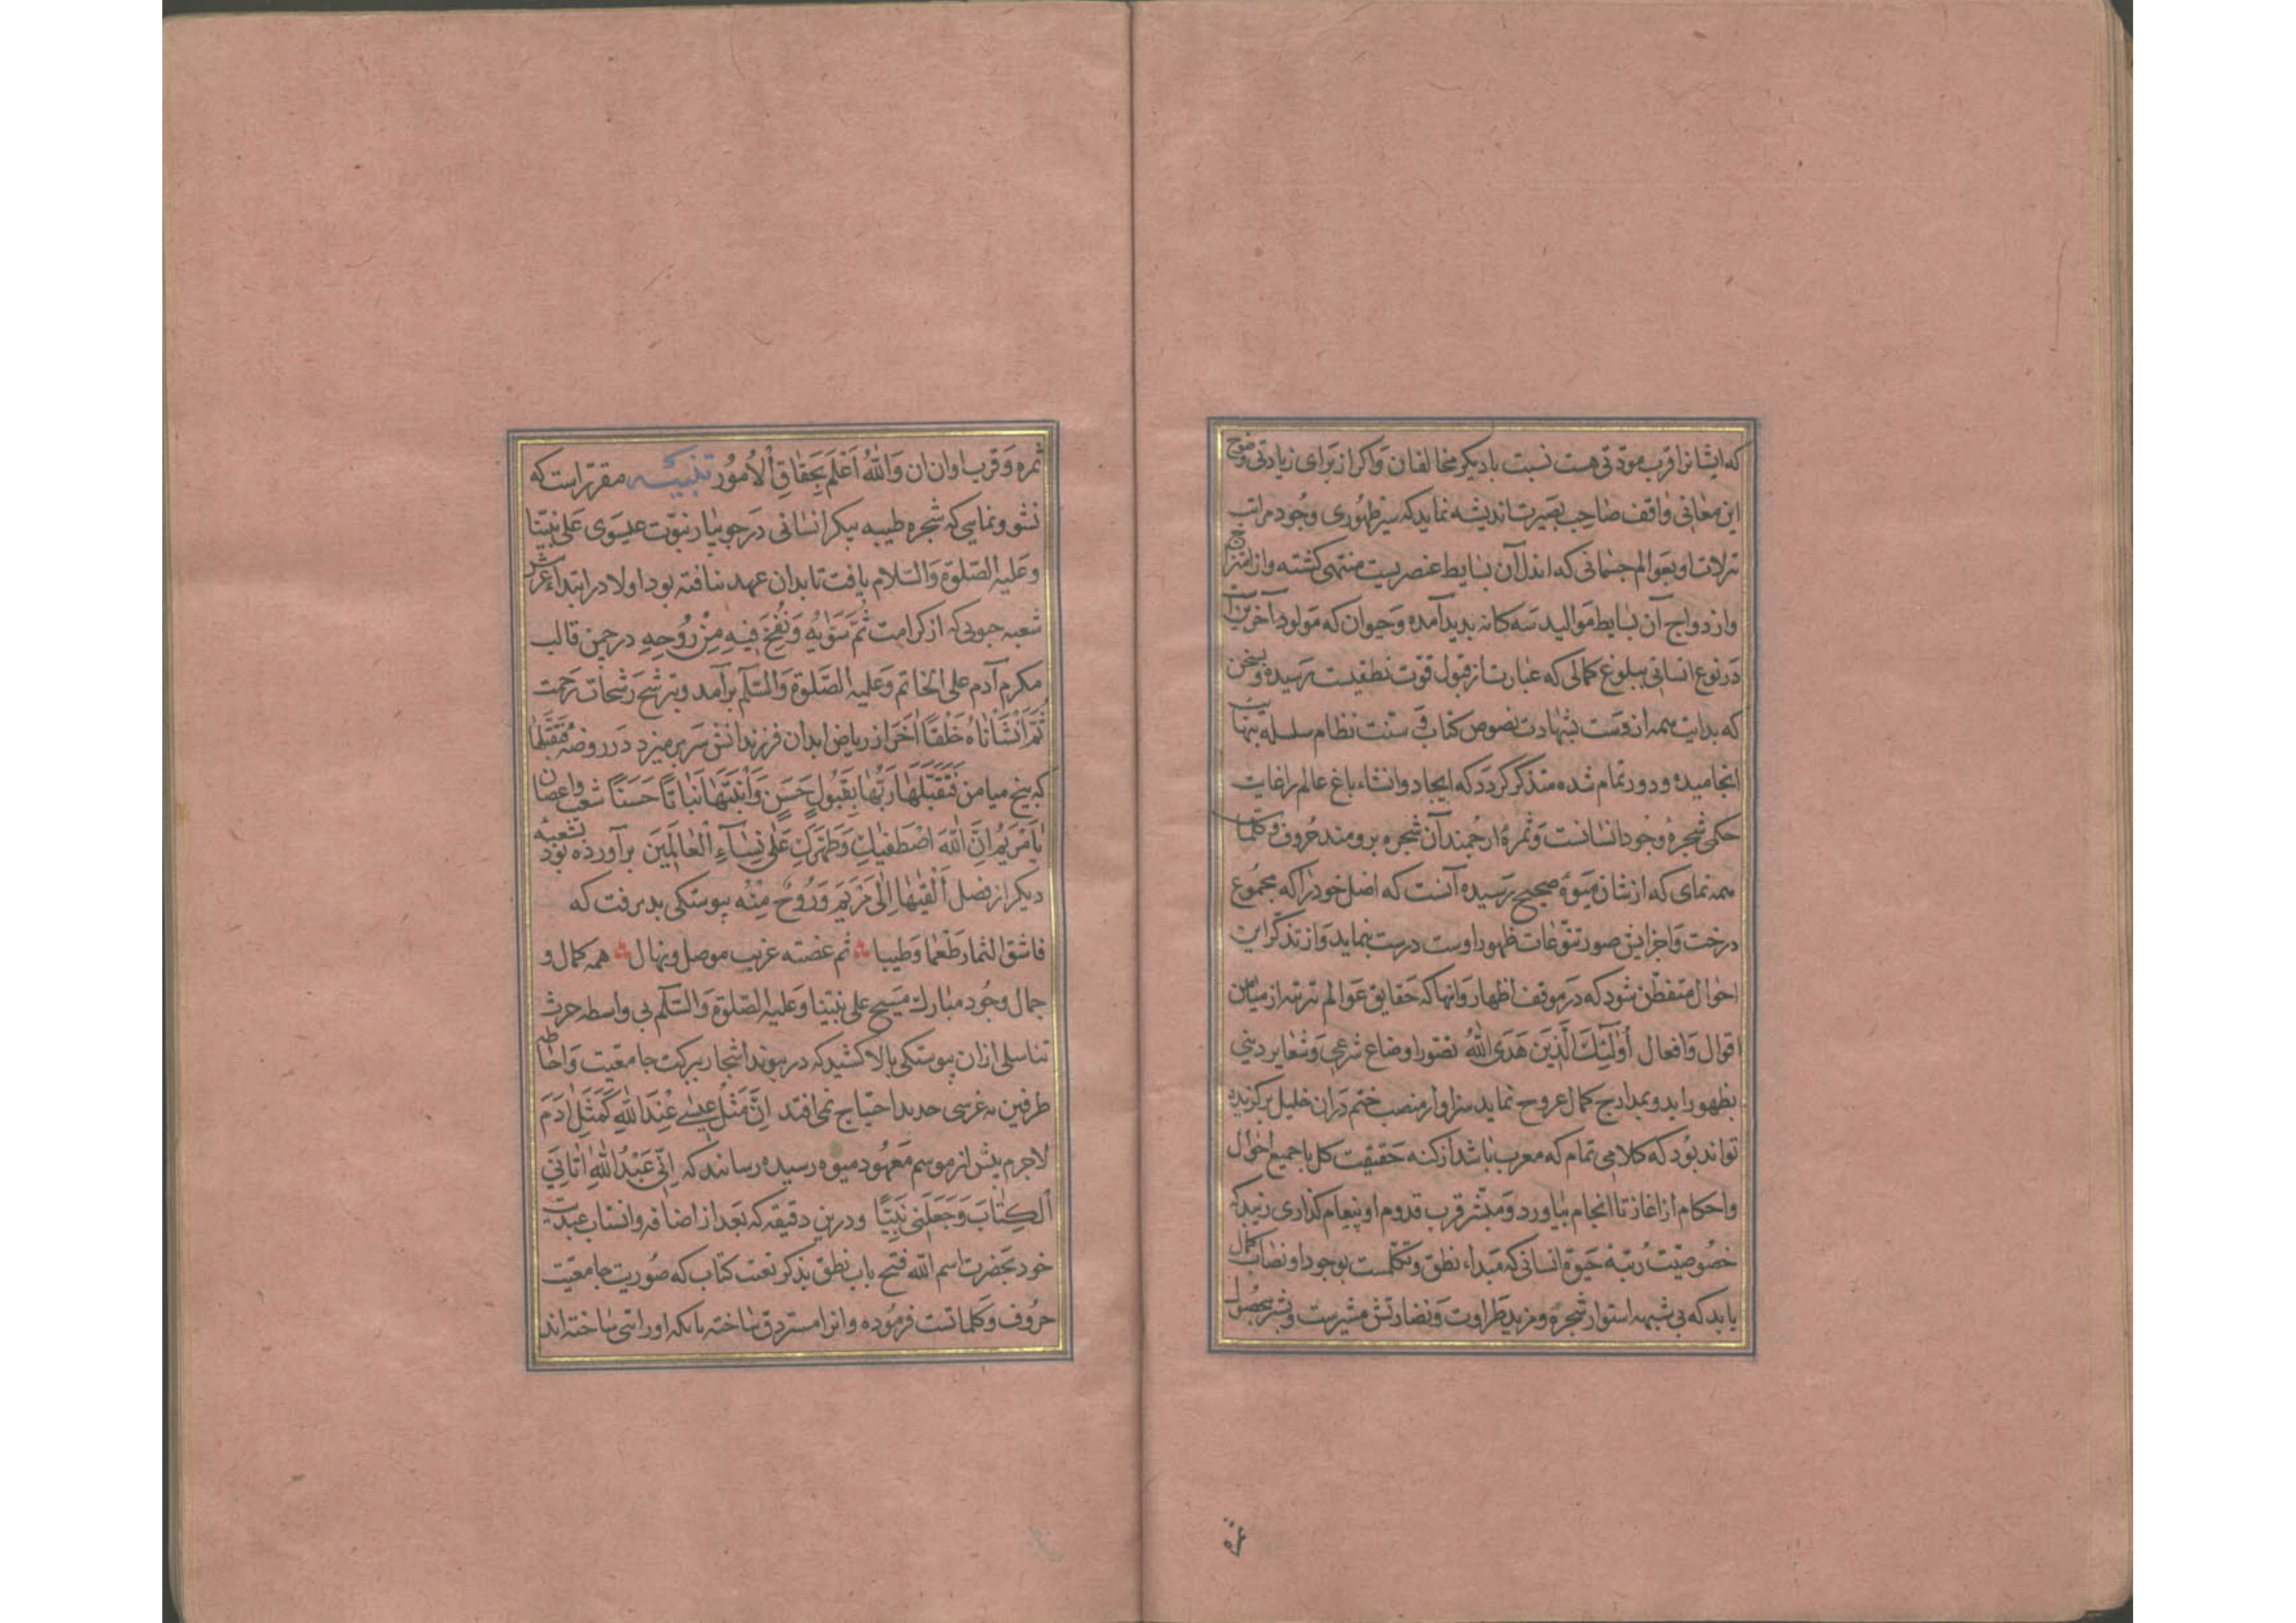 که ایشانرا قرب مودتی هست نسبت با دیگر مخالفان واکر از برای زیادتی وضوح
این معانی واقف صاحب بصیرت اندیشه نماید که سیر ظهوری وجود مراتب
تنزلات او بعوالم جسمانی که اندل آن بسایط عنصریست منتهی کشته واز امتزاج
وازدواج آن بسایط موالید سه کانه بدید آمده وحیوان که مولود آخرین است
در نوع انسانی ببلوغ کمالی که عبارت از قبول قوت نطقیست رسیده وسخن
که بدایت همه ازوست بشهادت نصوص کتاب و سنت نظام سلسله بنهایت
انجامیده و دور تمام شده متذکر کردد که ایجاد وانشاء باغ عالم را غایت
حکمی شجرهٔ وجود انسانست وثمرهٔ ارجمند آن شجره برومند حروف وکلمات
همه نمای که از شان میوهٔ صحیح رسیده آنست که اصل خود را که مجموع
درخت واجزایش صور تنوعات ظهور اوست درست بنماید واز تذکر این
احوال متفطن شود که در موقف اظهار وانها که حقایق عوالم تربته از میامن
اقوال وافعال أُولٰئِكَ الَّذِينَ هَدَى اللّٰهُ تصور اوضاع شرعی وشعایر دینی
بظهور اید وبمدارج کمال عروج نماید سزاوار منصب ختم دران خلیل برکزیده
تواند بود که کلامی تمام که معرب باشد از کنه حقیقت کل با جمیع احوال
واحکام از اغاز تا انجام بیاورد ومبشر قرب قدوم او پیغام کذاری زیبد که
خصوصیت رتبهٔ حیوة انسانی که مبداء نطق وتکلمست بوجود او نصاب کمال
یابد که بی شبهه استوار شجره ومزید طراوت ونضارتش مشیرست وبشر بحصول
ثمره وقرب اوان ان وَاللّٰهُ اَعْلَم بِحَقَايِقِ الْاُمُور تنبیـه مقرر است که
نشو ونمایی که شجره طیبه پیکر انسانی در جویبار نبوت عیسوی علی نبینا
وعلیه الصلوة والسلام یافت تا بدان عهد نیافته بود اولا در ابتداء غرس
شعبه جوبی که از کرامت ثُمَّ سَوّٰيهُ وَنَفَخَ فِيهِ مِنْ رُوحِهِ در چمن قالب
مکرم آدم علی الخاتم وعلیه الصلوة والسلم برآمد وبترشح رشحات رحمت
ثُمَّ اَنْشَأْنَاهُ خَلْقًا اٰخَرَ از ریاض ابدان فرزندانش سر بر میزد در روضه فَتَقَبَّلَهَا
که بیخ میامن فَتَقَبَّلَهَا رَبُّهَا بِقَبُولٍ حَسَنٍ وَأَنْبَتَهَا نَبَاتًا حَسَنًا شعب واغصان
يَا مَرْيَمُ اِنَّ اللّٰهَ اصْطَفٰيكِ وَطَهَّرَكِ عَلٰى نِسَآءِ الْعَالَمِينَ برآورده بود بشعبهٔ
دیکر از فضل اَلْقٰيهَا اِلٰى مَرْيَمَ وَرُوحٌ مِنْهُ پیوستکی بدیرفت که
فاشق الثمار طعما وطیبا ثمر غضته غریب موصل ونهال همه کمال و
جمال وجود مبارک مسیح علی نبینا وعلیه الصلوة والسلم بی واسطه حرث
تناسلی ازان پیوستکی بالا کشید که در پیوند اشجار ببرکت جامعیت واحاطه
طرفین به غرسی جدید احتیاج نمی افتد اِنَّ مَثَلَ عِيسٰى عِنْدَ اللّٰهِ كَمَثَلِ اٰدَمَ
لاجرم بیش از موسم معهود میوه رسیده رسانید که اِنِّي عَبْدُ اللّٰهِ اٰتَانِيَ
الْكِتَابَ وَجَعَلَنِي نَبِيًّا ودرین دقیقه که بعد از اضافه وانتساب عبدیت
خود بحضرت اسم الله فتح باب نطق بذکر نعت کتاب که صورت جامعیت
حروف وکلماتست فرموده وانرا مستردق ساخته بانکه او را نبی ساخته اند